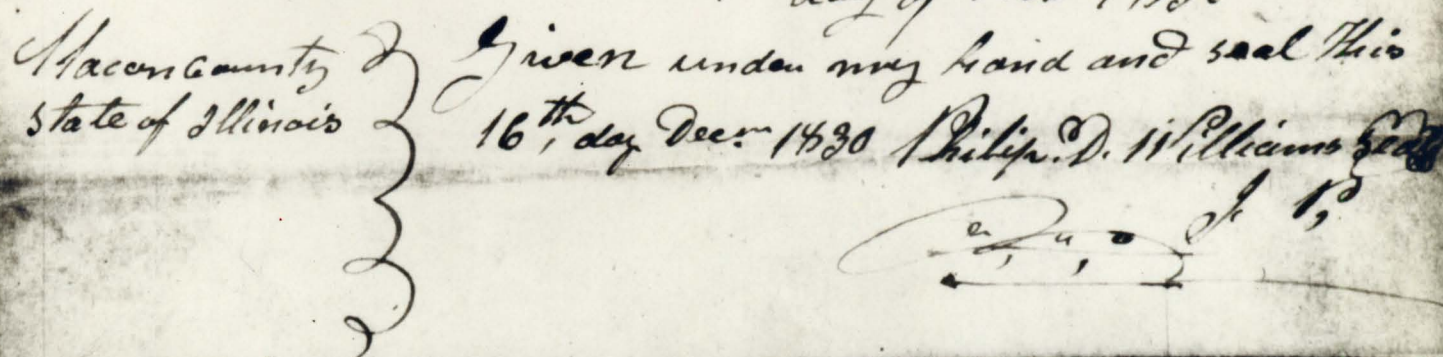 day of
Macon County
state of Illinois
Given under my hand and seal this
16th, day Decm 1830 Philip. D. Williams Seal
J. P,